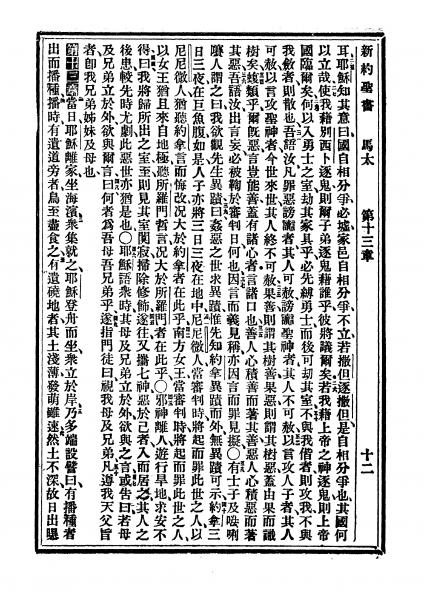 新約聖書 馬太 第十三章 十二
耳耶穌知其意曰國自相分爭必墟家邑自相分爭不立若撒但逐撒但是自相分爭也其國何
以立哉使我藉別西卜逐鬼則爾子弟逐鬼藉誰乎彼將議爾矣若我藉上帝之神逐鬼則上帝
國臨爾矣何以入勇士之室劫其家具乎必先縛勇士而後可劫其室不與我偕者則攻我不與
我斂者則散也吾語汝凡罪惡謗讟者其人可赦謗讟聖神者其人不可赦以言攻人子者其人
可赦以言攻聖神者今世來世其人終不可赦果善則謂其樹善果惡則謂其樹惡蓋由果而識
樹矣蝮類乎爾旣惡言豈能善蓋有諸心者言諸口也善人心積善而著其善惡人心積惡而著
其惡吾語汝出言妄必被鞫於審判日何也因言而義見稱亦因言而罪見擬〇有士子及㗔唎
㘔人謂之曰我欲觀先生異蹟曰姦惡之世求異蹟惟先知約拿異蹟而外無異蹟可示約拿三
日三夜在巨魚腹如是人子亦將三日三夜在地中尼尼微人當審判時將起而罪此世之人以
尼尼微人猶聽約拿言而悔改况大於約拿者在此乎南方女王當審判時將起而罪此世之人
以女王猶且來自地極聽所羅門哲言况大於所羅門者在此乎〇邪神離人遊行旱地求安不
得曰我將歸所出之室至則見其室闃寂掃除修飾遂往又攜七神惡於己者入而居之其人之
後患較先時尤劇此惡世亦猶是也〇耶穌語衆時其母及兄弟立於外欲與之言或告曰若母
及兄弟立於外欲與爾言曰何者爲吾母吾兄弟乎遂指門徒曰視我母及兄弟凡遵我天父旨
者卽我兄弟姊妹及母也
第十三章當日耶穌離家坐海濱衆集就之耶穌登舟而坐衆立於岸乃多端設譬曰有播種者
出而播種播時有遺道旁者鳥至盡食之有遺磽地者其土淺薄發萌雖速然土不深故日出曝